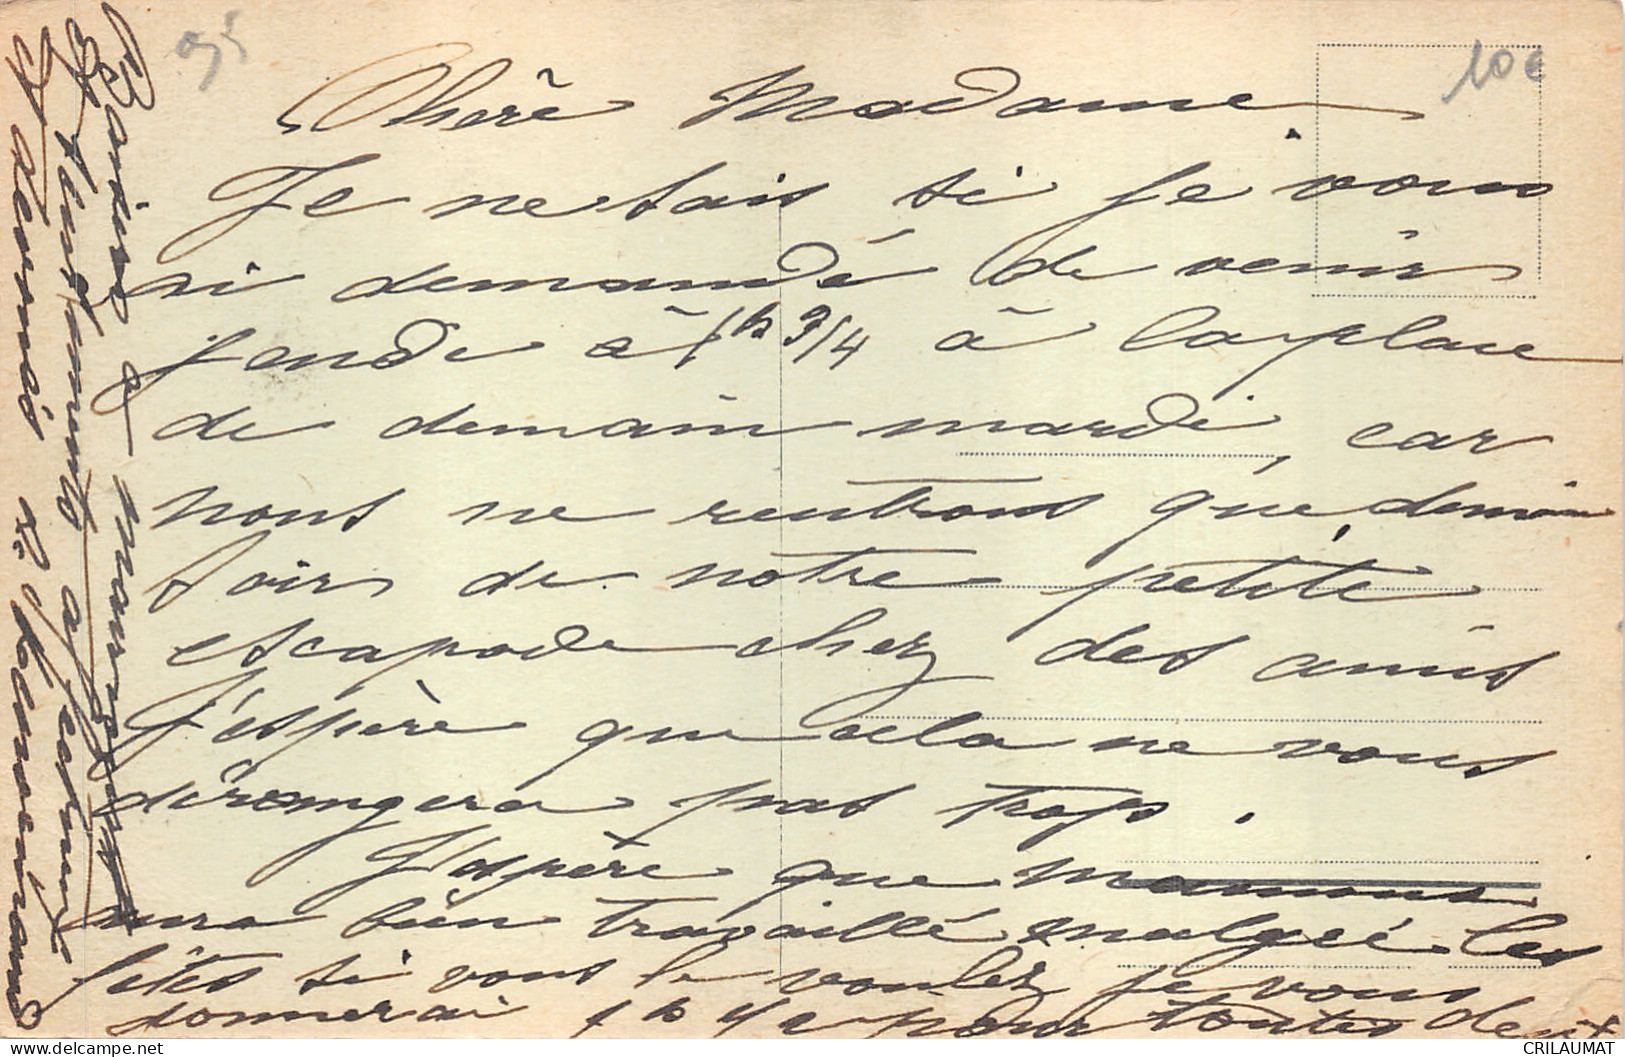 95
10€
Chère Madame
Je ne sais si je vous
ai demandé de venir
jeudi à 1h 3/4 à la place
de demain mardi, car
nous ne rentrons que demain
soir de notre petite
escapade chez des amis
J'espère que cela ne vous
dérangera pas trop.
J'espère que
aura bien travaillé malgré les
fêtes si vous le voulez je vous
donnerai 1h 1/2 pour toutes deux
Baisers à
et sentiments affectueux
CRILAUMAT